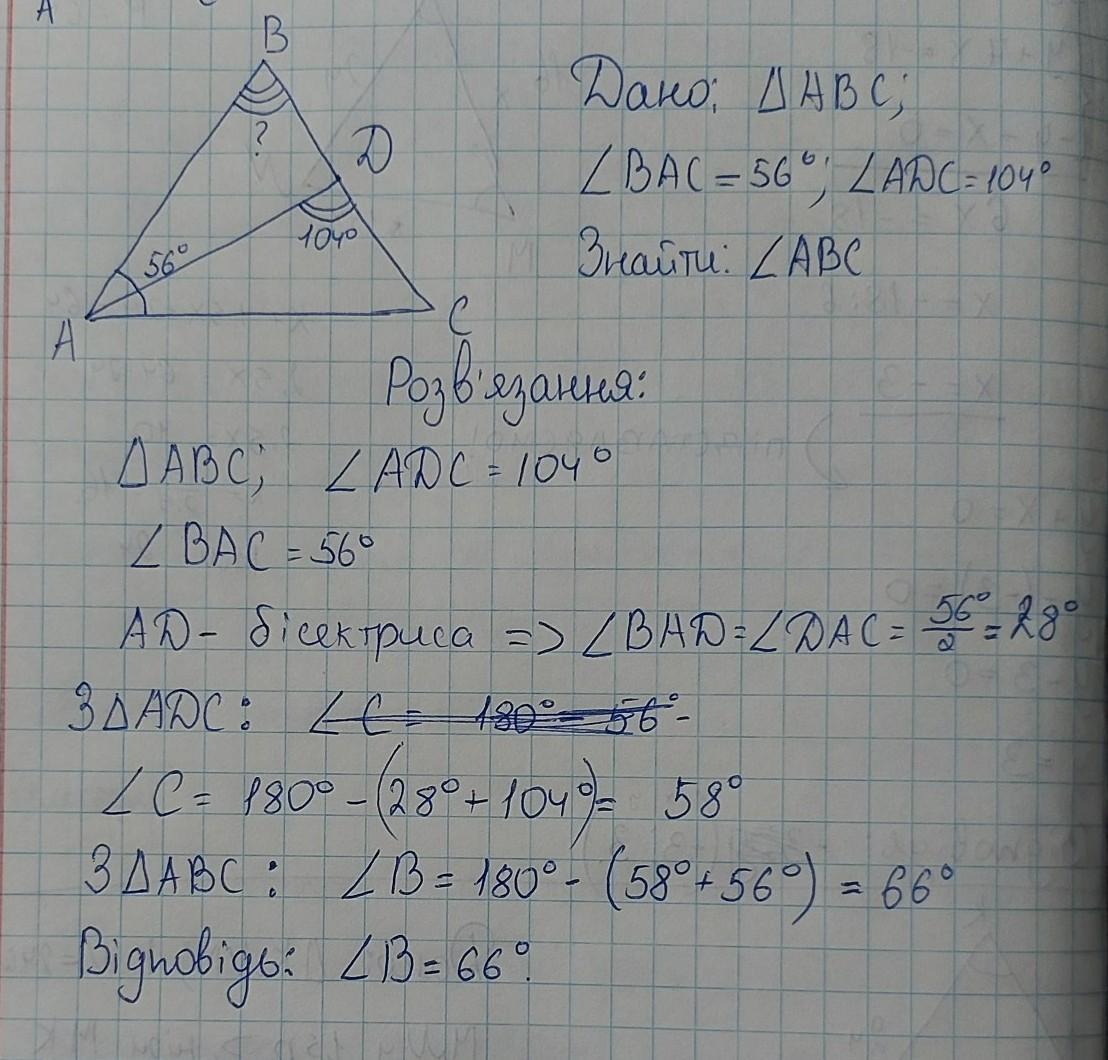 A
B
Дано: ΔABC;
?
D
∠BAC = 56°; ∠ADC = 104°
104°
56°
Знайти: ∠ABC
A
C
Розв'язання:
ΔABC; ∠ADC = 104°
∠BAC = 56°
AD – бісектриса => ∠BAD = ∠DAC = 56°/2 = 28°
З ΔADC: ∠C = 180° – 56° –
∠C = 180° – (28° + 104°) = 58°
З ΔABC: ∠B = 180° – (58° + 56°) = 66°
Відповідь: ∠B = 66°.